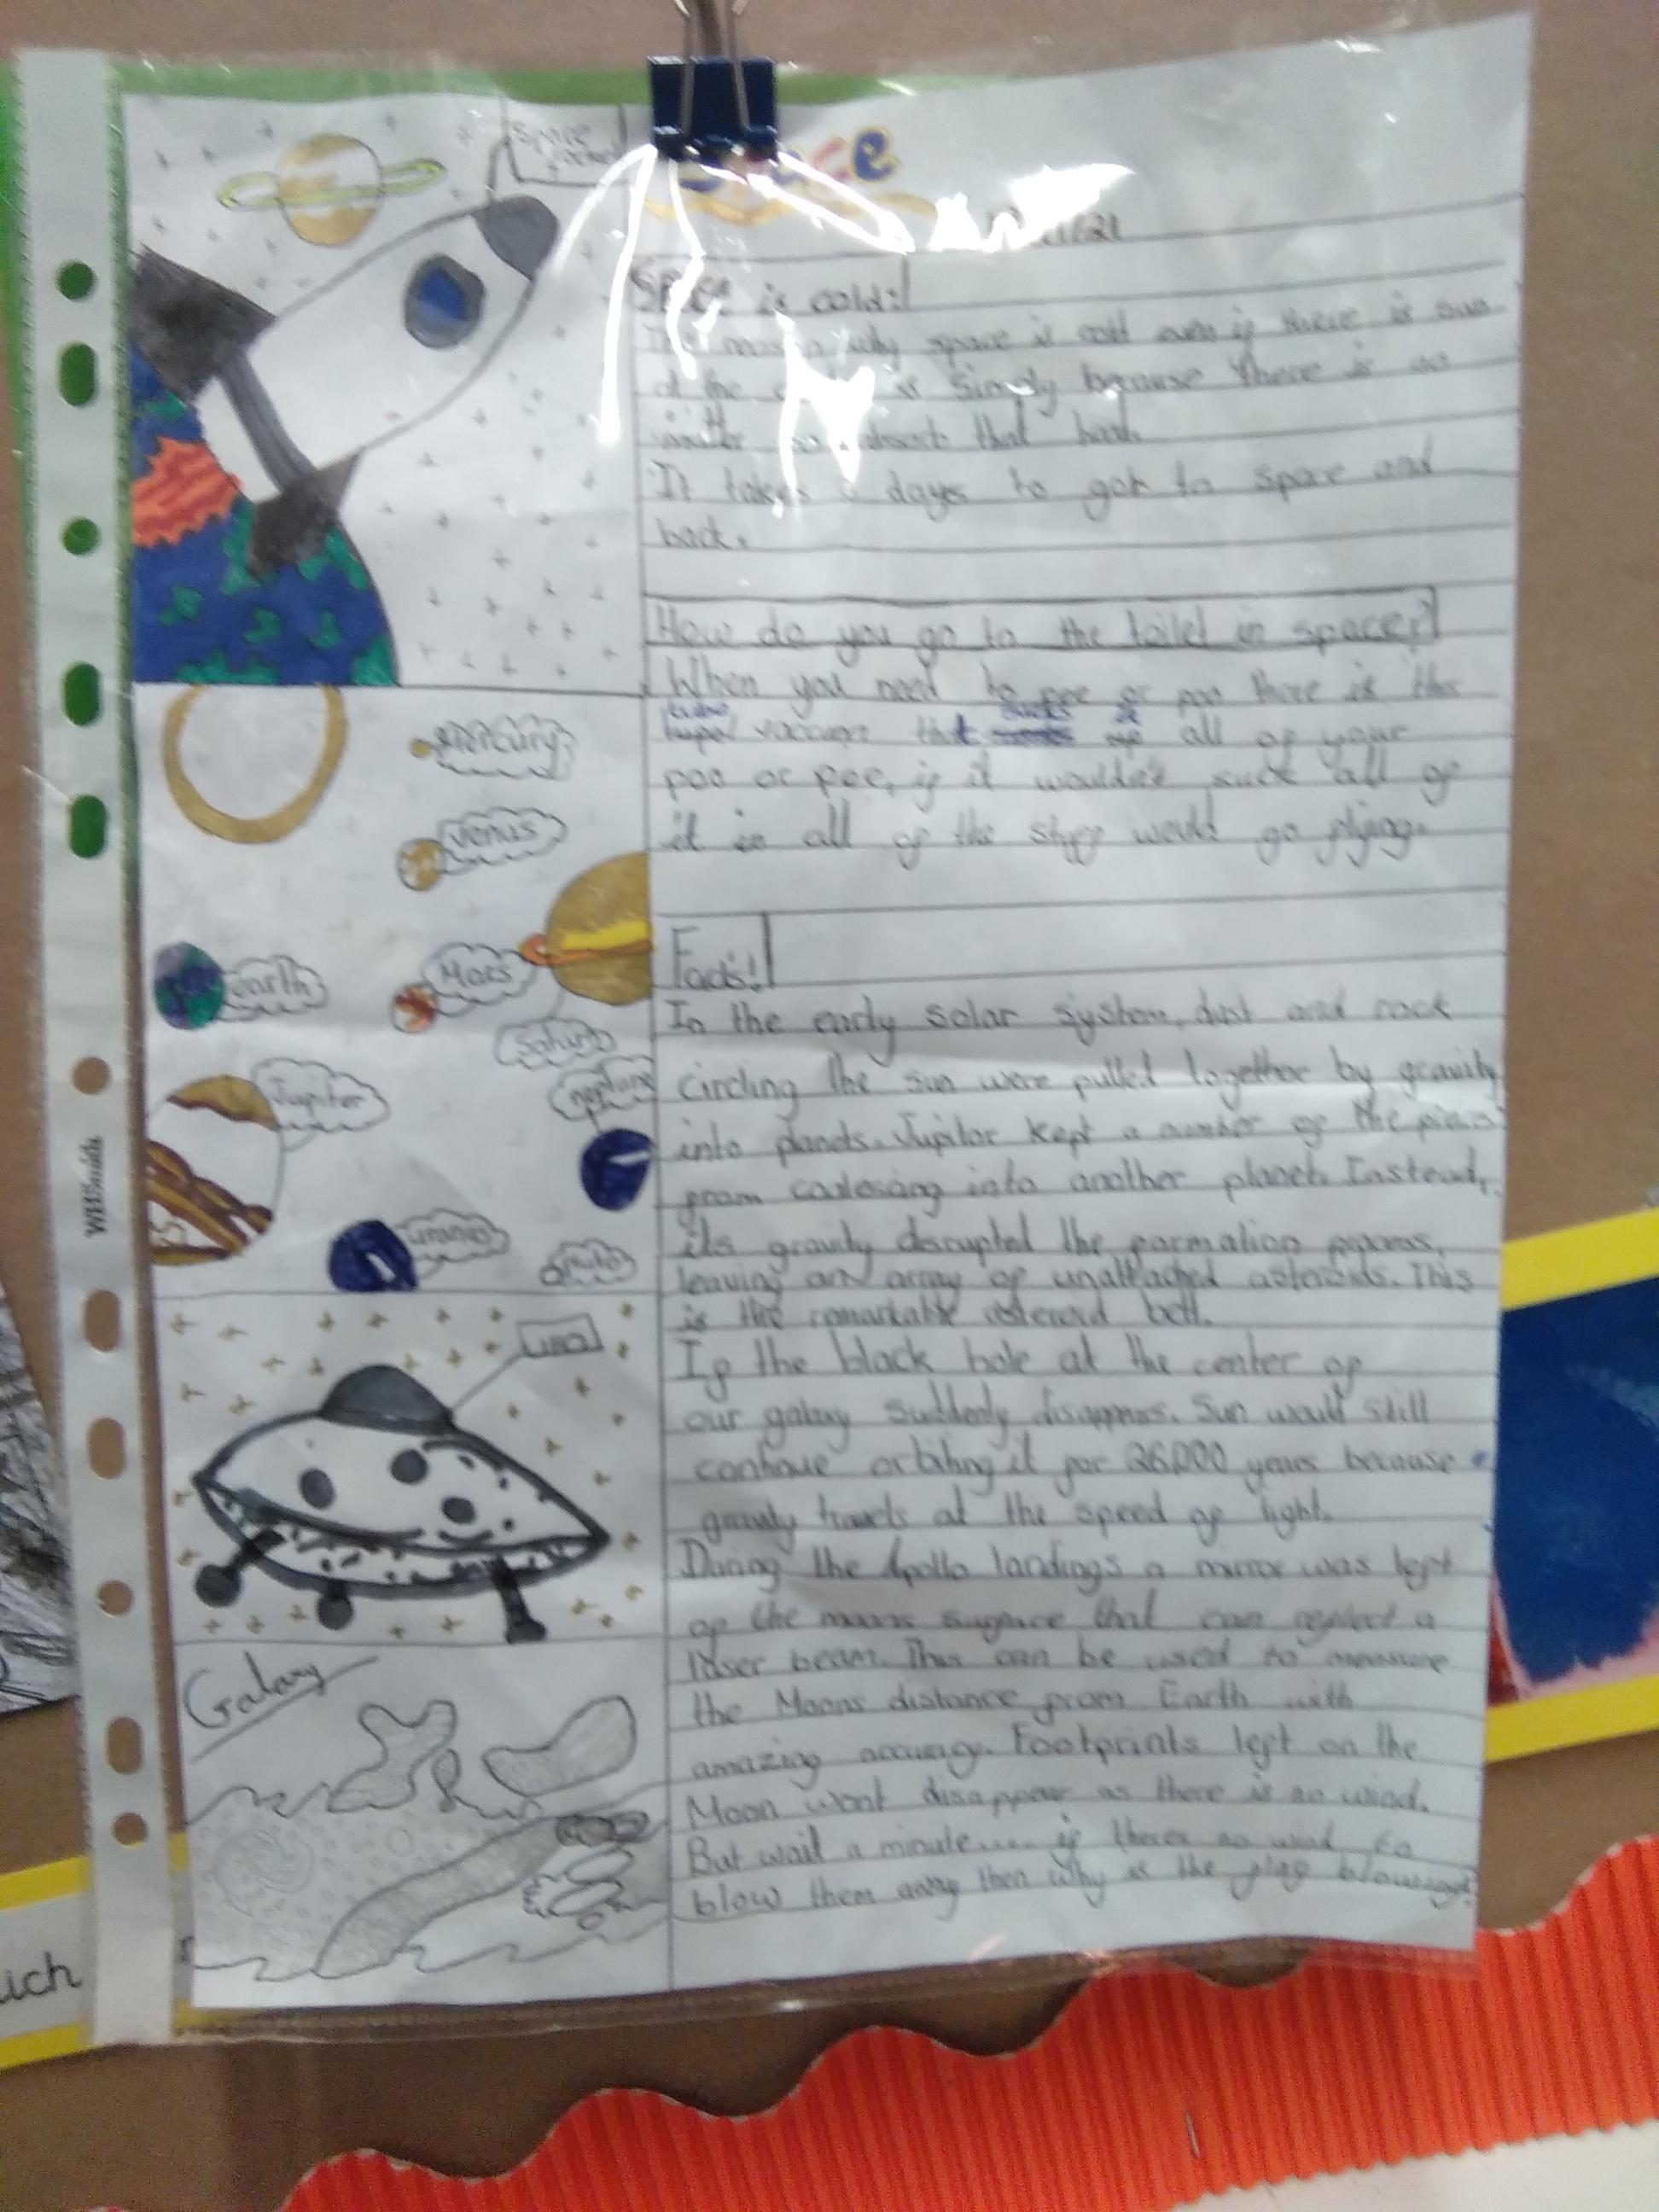 Space
Space rocket
Space is cold!
The reason why space is cold even if there is sun
at the is simply because there is no
matter to absorb that heat.
It takes days to get to space and
back.
How do you go to the toilet in space?
When you need to pee or poo there is this
vaccum that sucks all of your
poo or pee, if it wouldn't suck all of
it in all of the stuff would go flying.
Facts!
In the early solar system, dust and rock
circling the sun were pulled together by gravity
into planets. Jupiter kept a number of the
from coalescing into another planet. Instead,
its gravity disrupted the formation process,
leaving an array of unattached asteroids. This
is the remarkable asteroid belt.
If the black hole at the center of
our galaxy suddenly disappears. Sun would still
continue orbiting it for 26,000 years because
gravity travels at the speed of light.
During the Apollo landings a mirror was left
of the moons surface that can reflect a
laser beam. This can be used to measure
the Moons distance from Earth with
amazing accuracy. Footprints left on the
Moon wont disappear as there is no wind.
But wait a minute.... if theres no wind to
blow them away then why is the flag blowing?
Mercury
Venus
earth
Mars
Saturn
Jupiter
neptune
uranus
pluto
UFO
Galaxy
WHSmith
uch